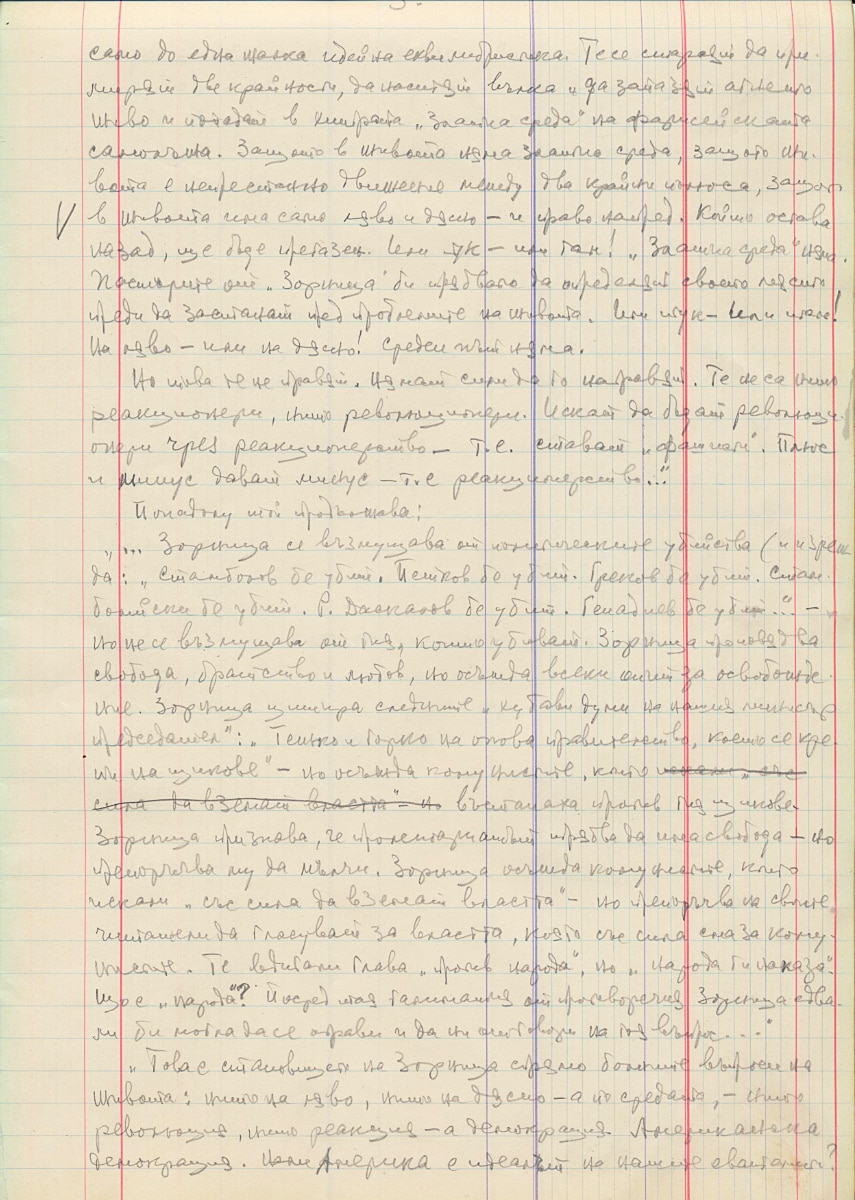 само до една жалка идейна еквилибристика. Те се стараят да при-
мирят две крайности, да наситят вълка и да запазят агнето
живо и попадат в хитрата „Златна среда" на фарисейската
самолъжа. Защото в живота няма златна среда, защото жи-
вота е непрестанно движение между два крайни полюса, защото
в живота има само ляво и дясно – и право напред. Който остава
назад, ще бъде прегазен. Или тук – или там! „Златна среда" няма.
Пасторите от „Зорница" би трябвало да определят своето място
преди да застанат пред проблемите на живота. Или тук – Или там!
На ляво – или на дясно! Среден път няма.
Но това те не правят. Нямат сили да го направят. Те не са нито
реакционери, нито революционери. Искат да бъдат революци-
онери чрез реакционерство – т.е. стават „фашисти". Плюс
и минус дават минус – т.е реакционерство..."
Понадолу той продължава:
„... Зорница се възмущава от политическите убийства (и изреж-
да: „Стамболов бе убит. Петков бе убит. Греков бе убит. Стам-
болийски бе убит. Р. Даскалов бе убит. Генадиев бе убит..." –
но не се възмущава от тия, които убиват. Зорница проповядва
свобода, братство и любов, но осъжда всеки опит за освобожде-
ние. Зорница цитира следните „хубави думи на нашия министър
председател": „Тежко и горко на онова правителство, което се кре-
пи на щикове" – но осъжда комунистите, които искат „със
сила да вземат властта" – но въстанаха против тия щикове.
Зорница признава, че пролетариатът трябва да има свобода – но
препоръчва му да мълчи. Зорница осъжда комунистите, които
искали „със сила да вземат властта" – но препоръчва на своите
читатели да гласуват за властта, която със сила смаза кому-
нистите. Те вдигали глава „против народа", но „народа ги наказа".
Що е „народа"? Посред тая галиматия от противоречия Зорница едва-
ли би могла да се оправи и да ни отговори на тоя въпрос...."
„Това е становището на Зорница спрямо болните въпроси на
живота: нито на ляво, нито на дясно – а по средата, – нито
революция, нито реакция – а демокрация. Американска
демокрация. Нали Америка е идеалът на нашите евангелисти?